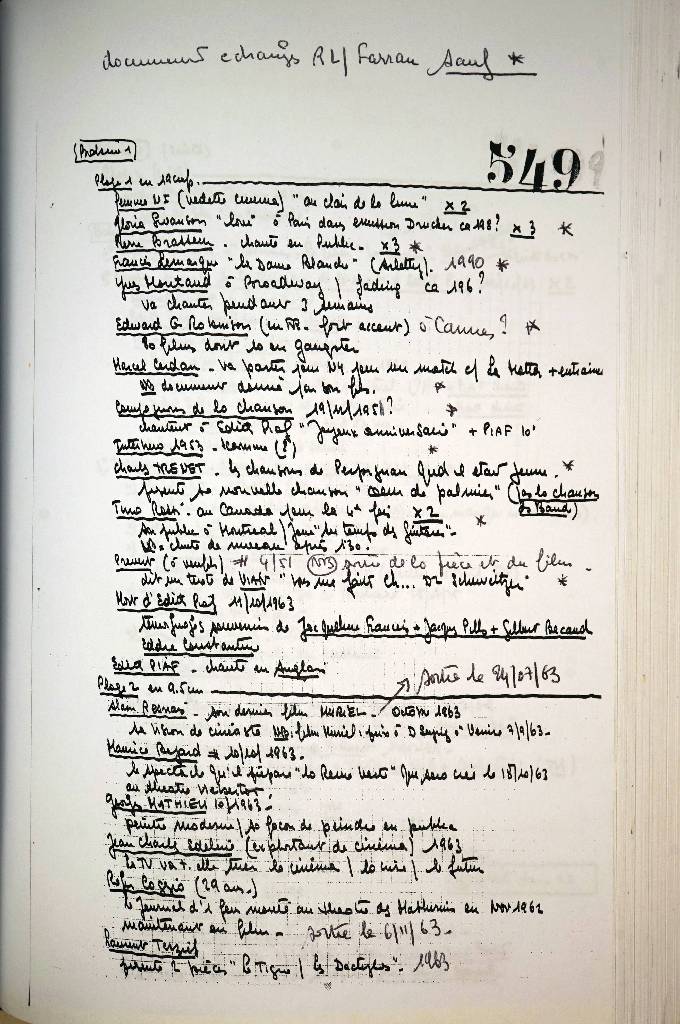 document echangés RL/Farran sauf *
549
Plage 1 en 19cm/s.
Femme US (vedette cinema) "au clair de la lune" x 2
Gloria Swanson "love" à Paris dans emission Drucker ca 198? x 3 *
Pierre Brasseur - chante en Public - x 3 *
Francis Lemarque "la Dame Blanche" (Arletty). 1990 *
Yves Montand à Broadway / fading ca 196?
va chanter pendant 3 semaines
Edward G Robinson (en FR - fort accent) à Cannes? *
80 films dont 40 en gangster
Marcel Cerdan - va partir pour NY pour un match c/ La Motta + entraine
NB document donné par son fils. *
Compagnons de la chanson 19/11/195 ? *
chantent à Edith Piaf "Joyeux anniversaire" + PIAF 10'
1953 - (?) *
Charles TRENET - les chansons de Perpignan Qud il etait jeune. *
presente sa nouvelle chanson "coeur de palmier" (pas la chanson
Tino Rossi - au Canada pour la 4e fois x 2 *
son public à Montreal / "le temps des guitares"-
NB - chute de niveau après 1'30.
Prevert # 4/51 NB sortie de la pièce et du film -
dit un texte de VIAN "vas me faire ch... Dr Schweitzer" *
Mort d'Edith Piaf 11/10/1963
temoignages souvenirs de Jacqueline Francois + Jacques Pills + Gilbert Becaud
Eddie Constantine
Edith PIAF - chante en Anglais
sortie le 24/07/63
Plage 2 en 9.5cm
Alain Resnais - son dernier film MURIEL - Octobre 1963
sa vision de cinéaste NB: film Muriel: prix à D Seyrig à Venise 7/9/63-
Maurice Bejard # 10/10/1963-
le spectacle qu'il prépare "la Reine Verte" Qui sera créé le 18/10/63
au theatre Hebertot
Georges MATHIEU 10/1963-
peintre moderne / sa façon de peindre en public
Jean Charles Edeline (exploitant de cinéma) 1963
la TV va t-elle tuer le cinéma / la crise / le futur
Roger Coggio (29 ans.)
le Journal d'1 fou monté au theatre des Mathurins en Nov 1962
maintenant en film - sortie le 6/11/63-
Laurent Terzieff
presente 2 pièces "le Tigre / les Dactylos"- 1963